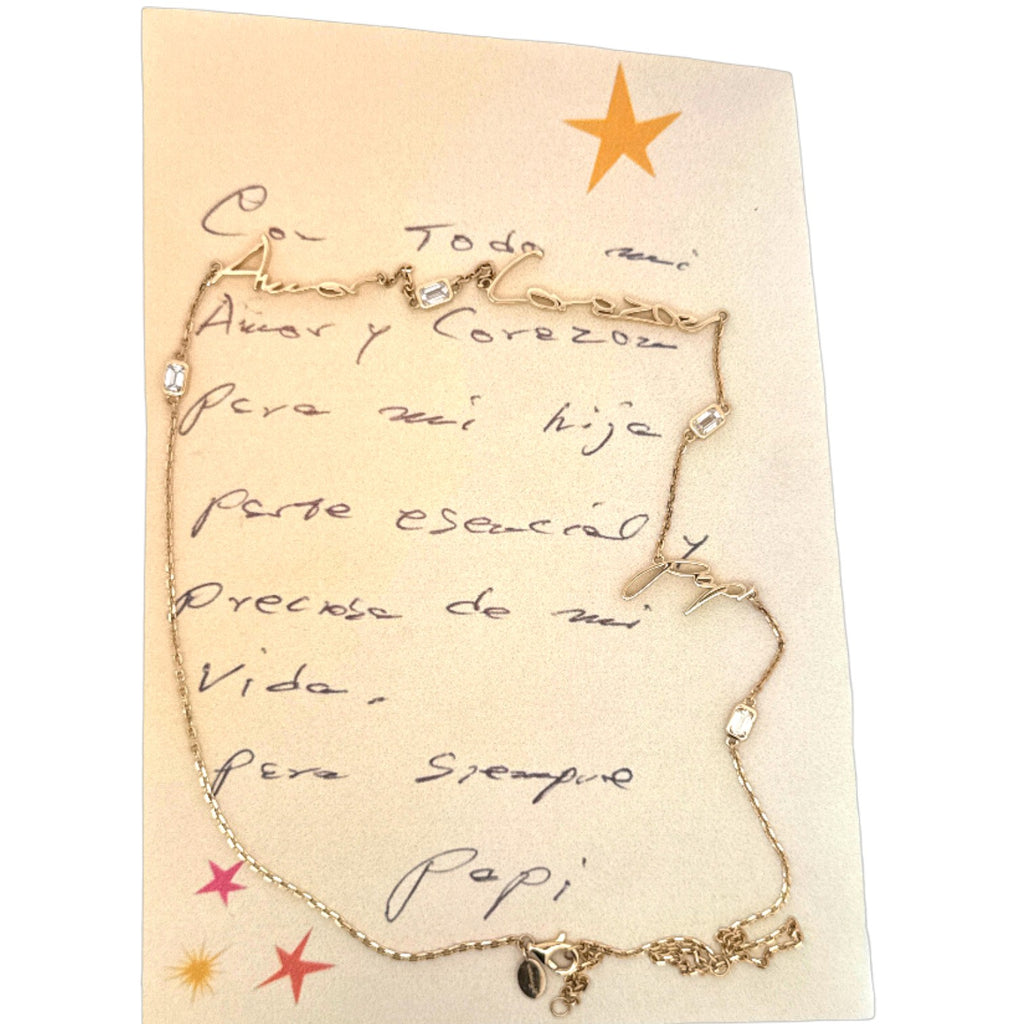 Con Todo mi
Amor Corazon
Amor y Corazon
para mi hija
parte esencial y
preciosa de mi
Vida.
para siempre
Papi
Papi